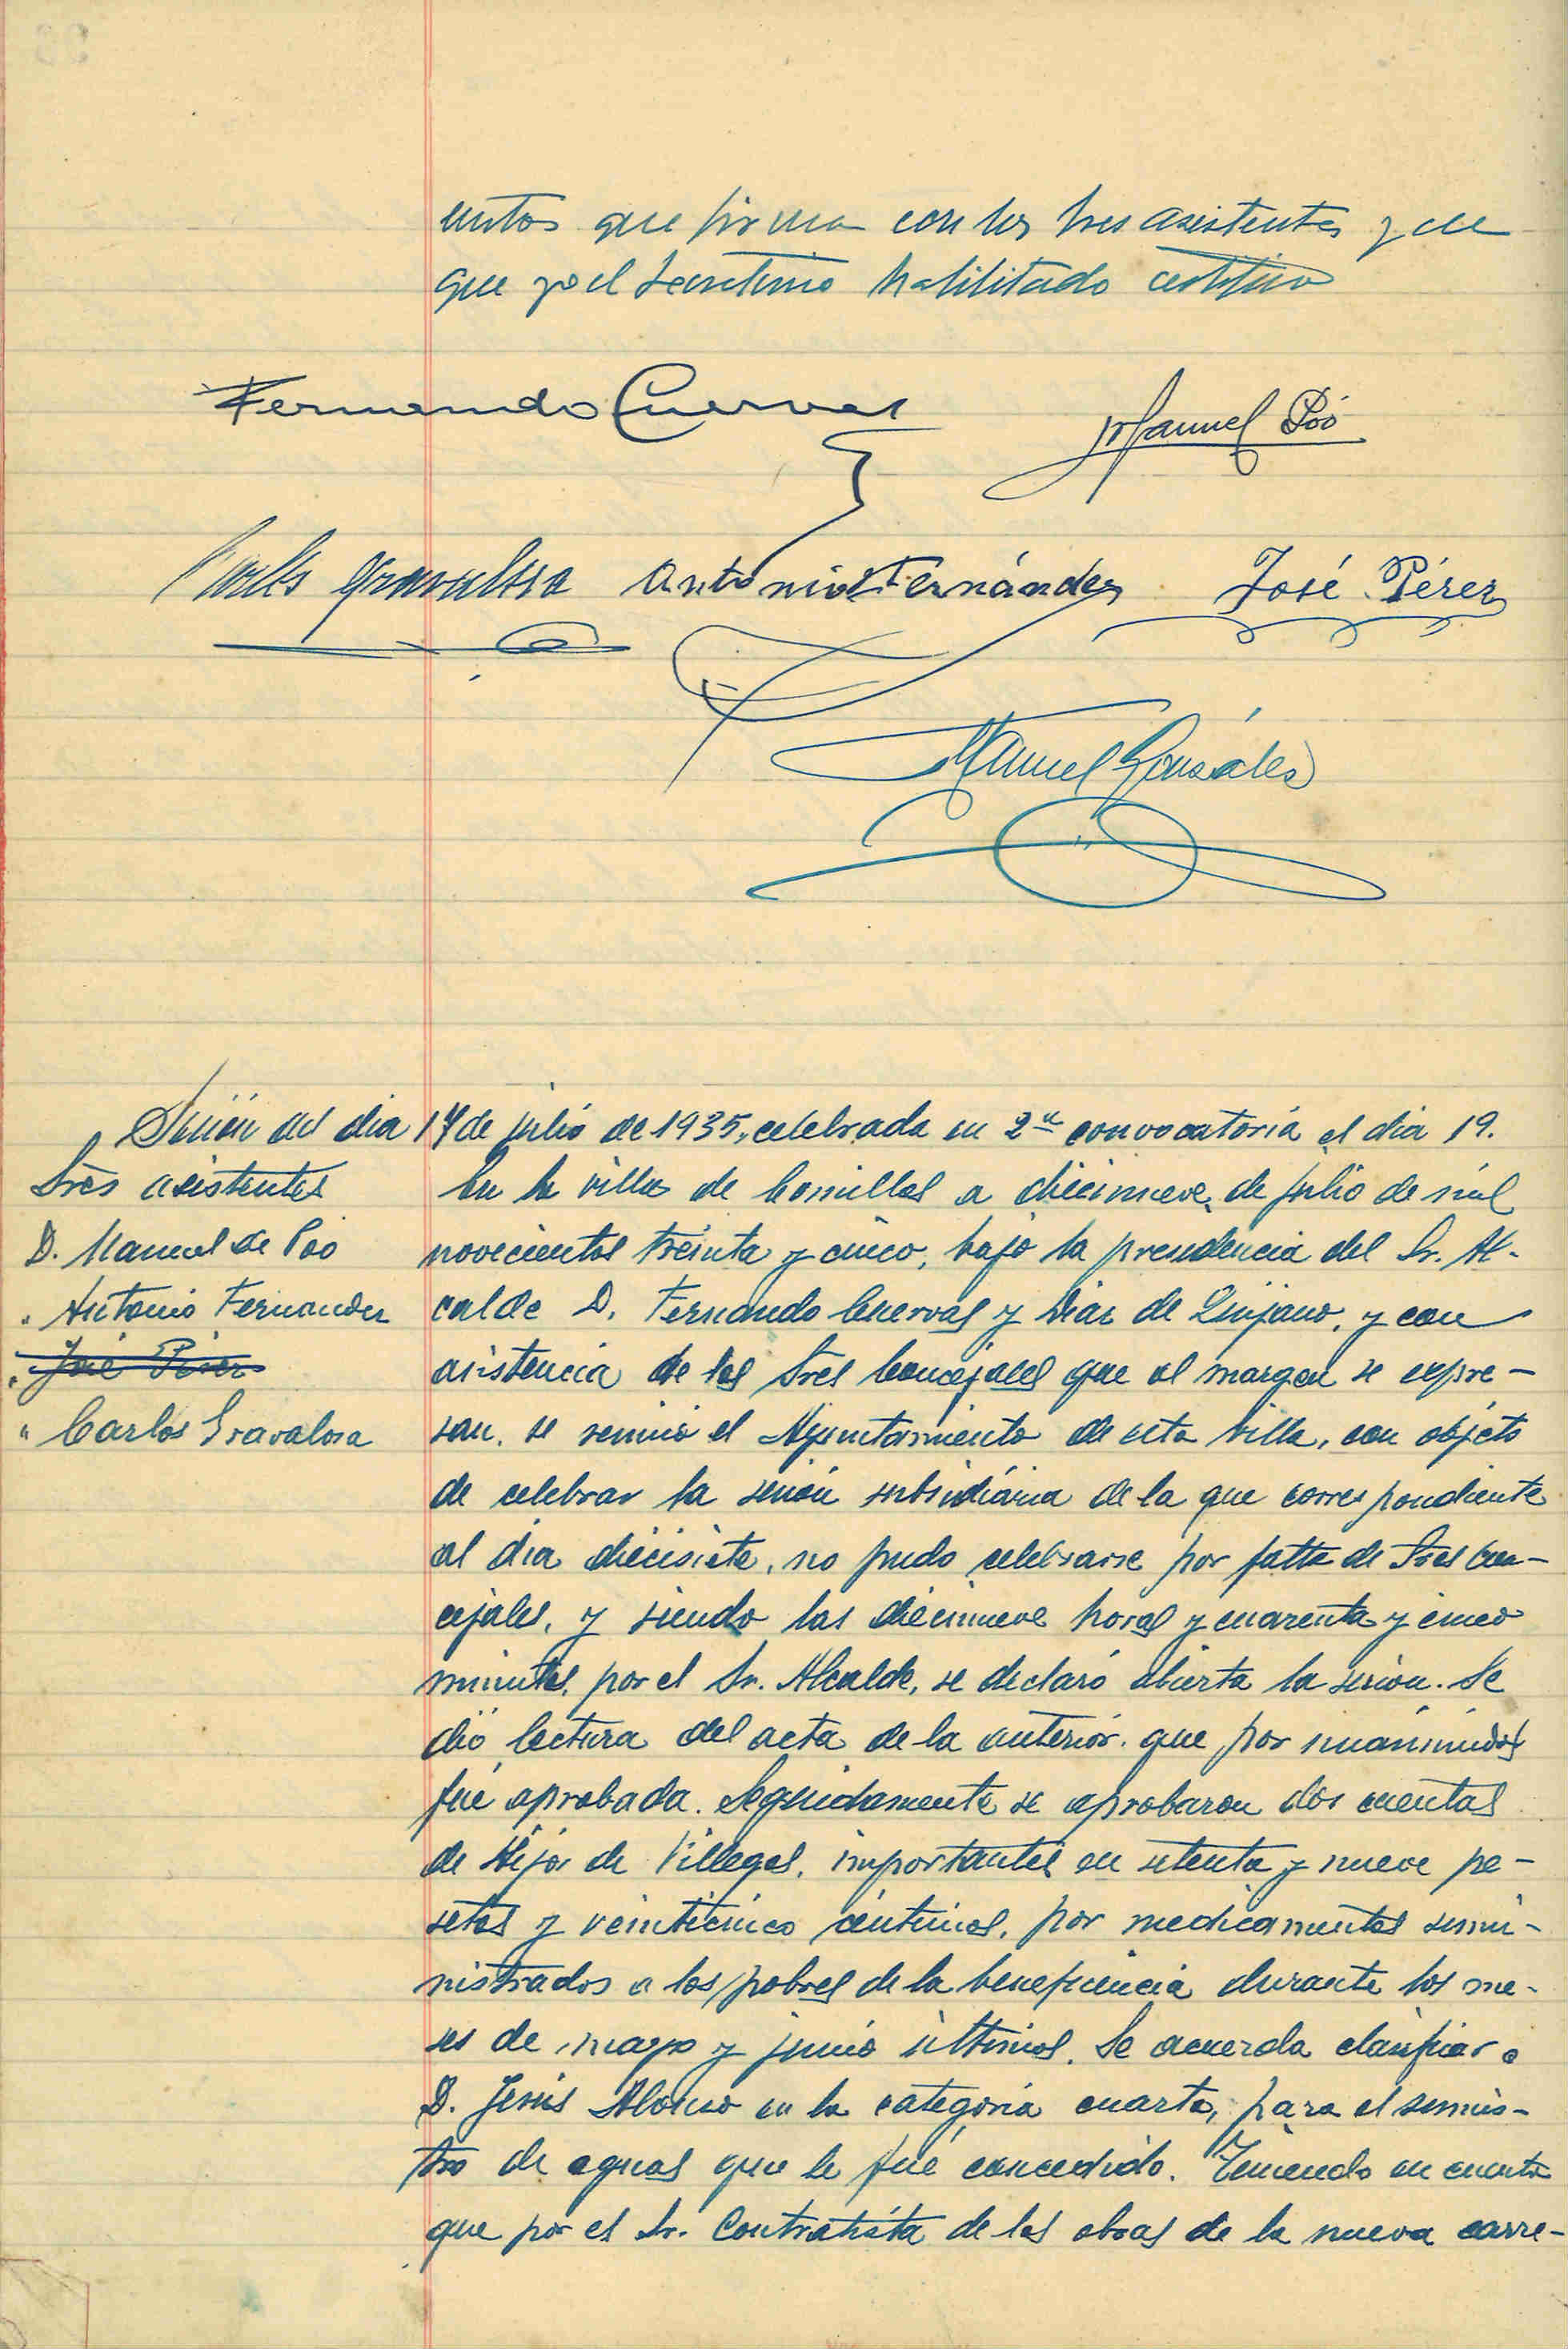 untos que firma con los tres asistentes y de
que yo el Secretario habilitado certifico
Fernando Cuervas
Manuel Poo
Carlos Gravalosa Antonio Fernández José Pérez
Manuel González
Sesión del dia 17 de julio de 1935, celebrada en 2ª convocatoria el dia 19.
Sres asistentes
D. Manuel de Poo
" Antonio Fernandez
" José Pérez
" Carlos Gravalosa
En la villa de Comillas a diecinueve de julio de mil
novecientos treinta y cinco, bajo la presidencia del Sr. Al-
calde D. Fernando Cuervas y Diaz de Quijano, y con
asistencia de los Sres Concejales que al margen se expre-
san, se reunió el Ayuntamiento de esta villa, con objeto
de celebrar la sesión subsidiaria de la que correspondiente
al dia diecisiete, no pudo celebrarse por falta de Sres Con-
cejales, y siendo las diecinueve horas y cuarenta y cinco
minutos, por el Sr. Alcalde, se declaró abierta la sesion. Se
dió lectura del acta de la anterior, que por unanimidad
fué aprobada. Seguidamente se aprobaron dos cuentas
de Hijos de Villegas, importantes en setenta y nueve pe-
setas y veinticinco centimos, por medicamentos sumi-
nistrados a los pobres de la beneficiencia durante los me-
ses de mayo y junio ultimos. Se acuerda clasificar a
D. Jesús Alonso en la categoria cuarta, para el sumis-
tro de aguas que le fué concedido. Teniendo en cuenta
que por el Sr. Contratista de las obras de la nueva carre-